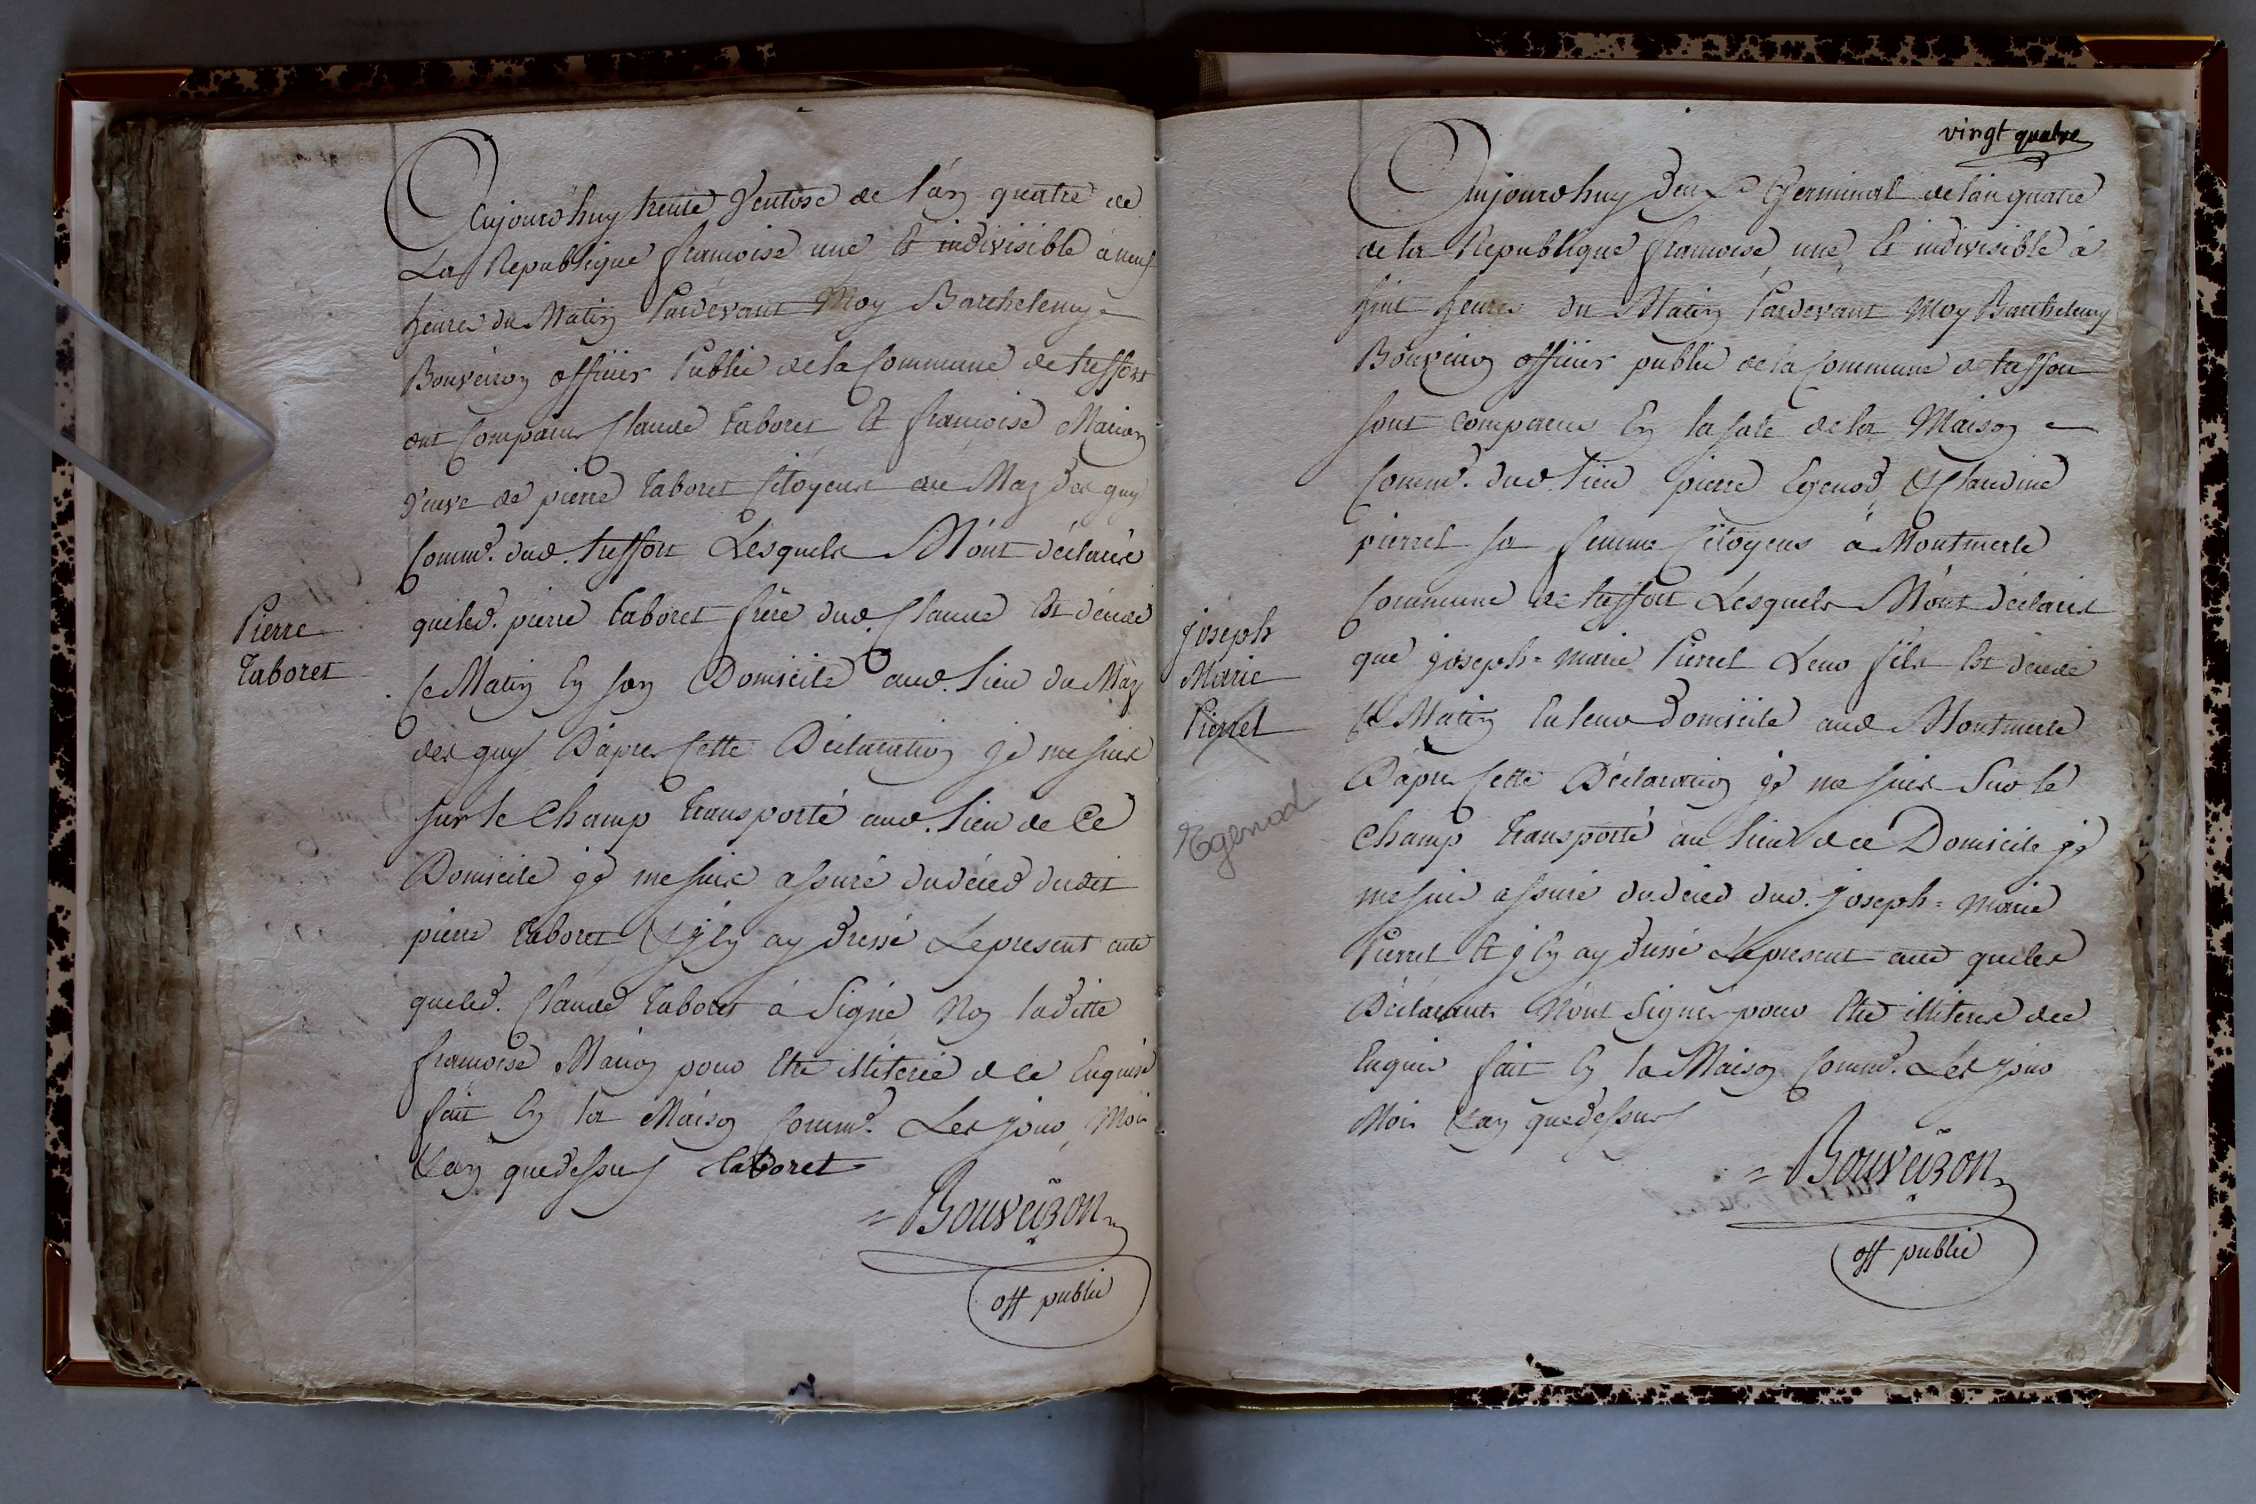 Aujourdhuy trente Ventose de l'an quatre de
La Republique francoise une Et indivisible à neuf
heures du Matin Pardevant Moy Barthelemy
Bouveiron officier Public de la Commune de treffort
ont Comparu Claude Taboret Et francoise Marion
Veuve de pierre Taboret Citoyens au Maz des guy
Comme. dud. treffort Lesquels M'ont déclaré
que led. pierre Taboret frère dud. Claude Est décédé
Ce Matin En son Domicile aud. Lieu du Maz
Pierre
Taboret
des guy D'apres Cette Déclaration je me suis
sur le Champ transporté aud. Lieu de Ce
Domicile je me suis assuré du décéd dudit
pierre Taboret & j'En ay dressé Le present acte
que led. Claude Taboret à Signé Non laditte
francoise Marion pour Etre illiterée de ce Enquise
fait En la Maison Comme. Les jour, Mois
& an que dessus taboret
= Bouveiron
off public
vingt quatre
Aujourdhuy deux Germinal de l'an quatre
de la Republique francoise une Et indivisible à
huit heures du Matin Pardevant Moy Barthelemy
Bouveiron officier public de la Commune de treffort
sont comparus En la sale de la Maison
Comme. dud. Lieu pierre Egenod & Claudine
pierrel sa femme Citoyens à Montmerle
Commune de treffort Lesquels M'ont déclaré
que joseph = marie Pierrel Leur fils Est décédé
Ce Matin En leur Domicile aud Montmerle
joseph
Marie
Pierrel
Egenod
D'apres Cette Déclaration je me suis Sur le
Champ transporté au Lieu de ce Domicile je
me suis assuré du déced dud. joseph = marie
Pierrel Et j'En ay dressé Le present acte que les
Déclarants N'ont Signé pour Etre illiterés de ce
Enquis fait En la Maison Comme. Les jour
Mois & an que dessus
= Bouveiron
off public